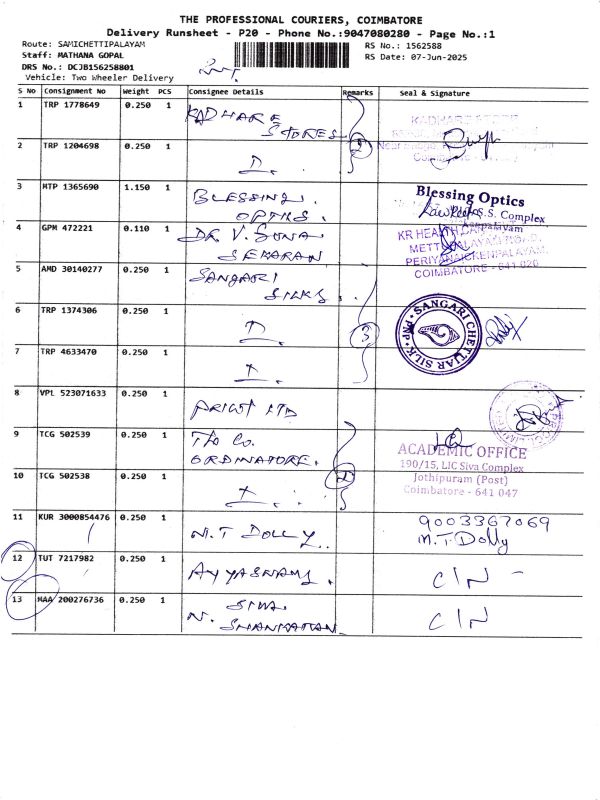 THE PROFESSIONAL COURIERS, COIMBATORE
Delivery Runsheet - P20 - Phone No.:9047080280 - Page No.:1
Route: SAMICHETTIPALAYAM
RS No.: 1562588
Staff: MATHANA GOPAL
RS Date: 07-Jun-2025
DRS No.: DCJB156258801
Vehicle: Two Wheeler Delivery
S No Consignment No Weight PCS Consignee Details Remarks Seal & Signature
1 TRP 1778649 0.250 1 KADHARE STORES
KADHARE STORE
2 TRP 1204698 0.250 1
3 MTP 1365690 1.150 1 BLESSING OPTKS.
Blessing Optics
S.S. Complex
4 GPM 472221 0.110 1 DR V. SONA SEKARAN
KR HEALTH
METTUPALAYAM ROAD,
PERIYANAICKENPALAYAM,
COIMBATORE - 641 020
5 AMD 30140277 0.250 1 SANGARI SILKS.
6 TRP 1374306 0.250 1
3
SANGARI CHETTIAR SILK PNP
7 TRP 4633470 0.250 1
8 VPL 523071633 0.250 1 PRICOT LTD
9 TCG 502539 0.250 1 T/o Co. ORDINATORE.
ACADEMIC OFFICE
190/15, LIC Siva Complex
Jothipuram (Post)
Coimbatore - 641 047
10 TCG 502538 0.250 1
11 KUR 3000854476 0.250 1 M.T DOLLY
9003367069
M.T.Dolly
12 TUT 7217982 0.250 1 AYYASWAMY.
C/N
13 MAA 200276736 0.250 1 N. SIVA. SHANKARAN
C/N